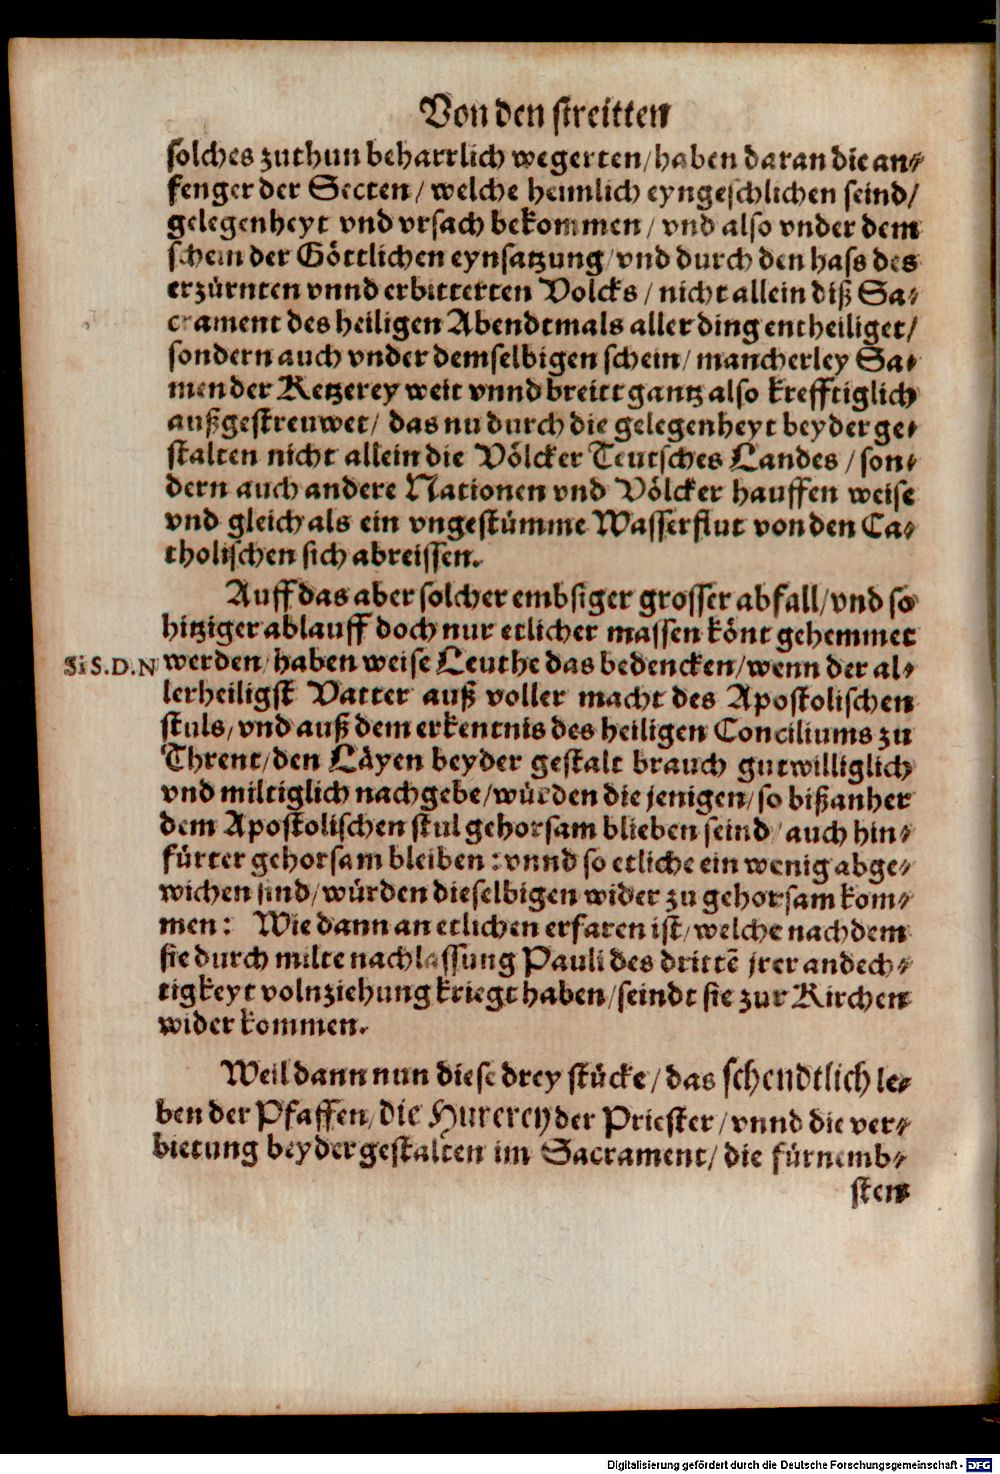 Von den streitten
solches zuthun beharrlich wegerten/haben daran die an-
fenger der Secten/welche heimlich eyngeschlichen seind/
gelegenheyt vnd vrsach bekommen/vnd also vnder dem
schein der Göttlichen eynsatzung/vnd durch den hass des
erzürnten vnnd erbitterten Volcks/nicht allein diß Sa-
crament des heiligen Abendtmals aller ding entheiliget/
sondern auch vnder demselbigen schein/mancherley Sa-
men der Ketzerey weit vnnd breitt gantz also krefftiglich
außgestreuwet/das nu durch die gelegenheyt beyder ge-
stalten nicht allein die Völcker Teutsches Landes/son-
dern auch andere Nationen vnd Völcker hauffen weise
vnd gleich als ein vngestümme Wasserflut von den Ca-
tholischen sich abreissen.
Auff das aber solcher embsiger grosser abfall/vnd so
hitziger ablauff doch nur etlicher massen könt gehemmet
Si S.D.N werden/haben weise Leuthe das bedencken/wenn der al-
lerheiligst Vatter auß voller macht des Apostolischen
stuls/vnd auß dem erkentnis des heiligen Conciliums zu
Thrent/den Läyen beyder gestalt brauch gutwilliglich
vnd miltiglich nachgebe/würden die jenigen/so bißanher
dem Apostolischen stul gehorsam blieben seind/auch hin-
fürter gehorsam bleiben: vnnd so etliche ein wenig abge-
wichen sind/würden dieselbigen wider zu gehorsam kom-
men: Wie dann an etlichen erfaren ist/welche nach dem
sie durch milte nachlassung Pauli des drittē jrer andech-
tigkeyt volnziehung kriegt haben/seindt sie zur Kirchen
wider kommen.
Weil dann nun diese drey stücke/das schendtlich le-
ben der Pfaffen/die Hurerey der Priester/vnnd die ver-
bietung beyder gestalten im Sacrament/die fürnemb-
sten
Digitalisierung gefördert durch die Deutsche Forschungsgemeinschaft - DFG